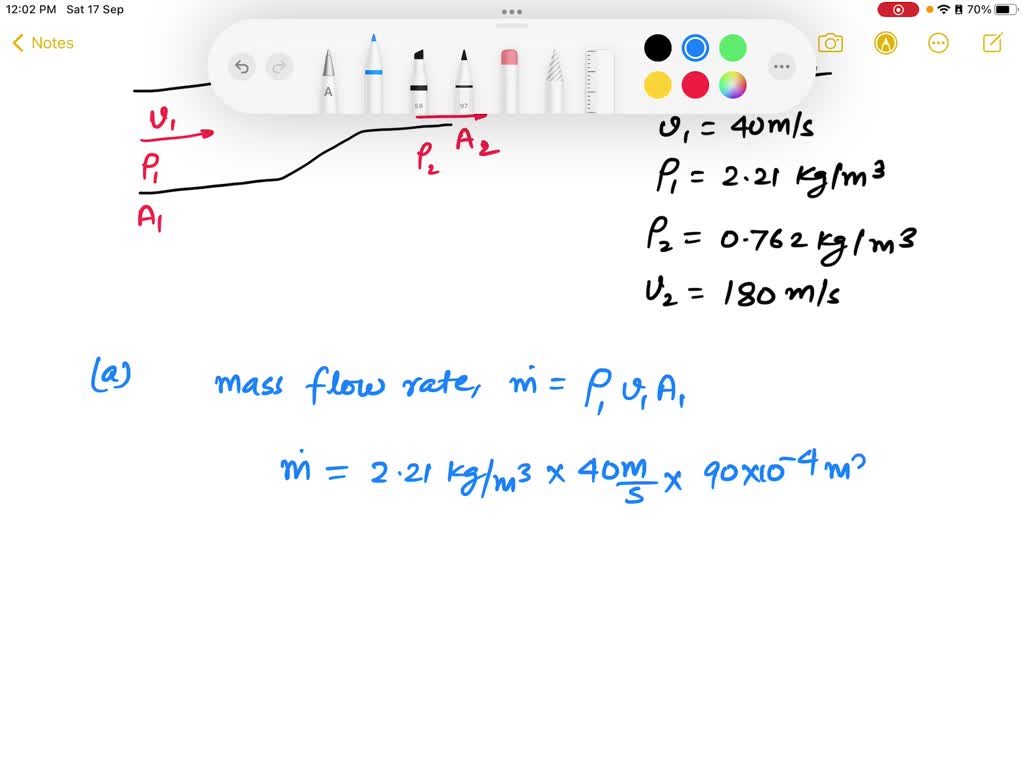 12:02 PM Sat 17 Sep
70%
Notes
A
59
97
υ₁
P₁
A₁
P₂
A₂
υ₁ = 40 m/s
P₁ = 2.21 kg/m³
P₂ = 0.762 kg/m³
υ₂ = 180 m/s
(a) mass flow rate, ṁ = P₁ υ₁ A₁
ṁ = 2.21 kg/m³ × 40 m/s × 90×10⁻⁴ m²